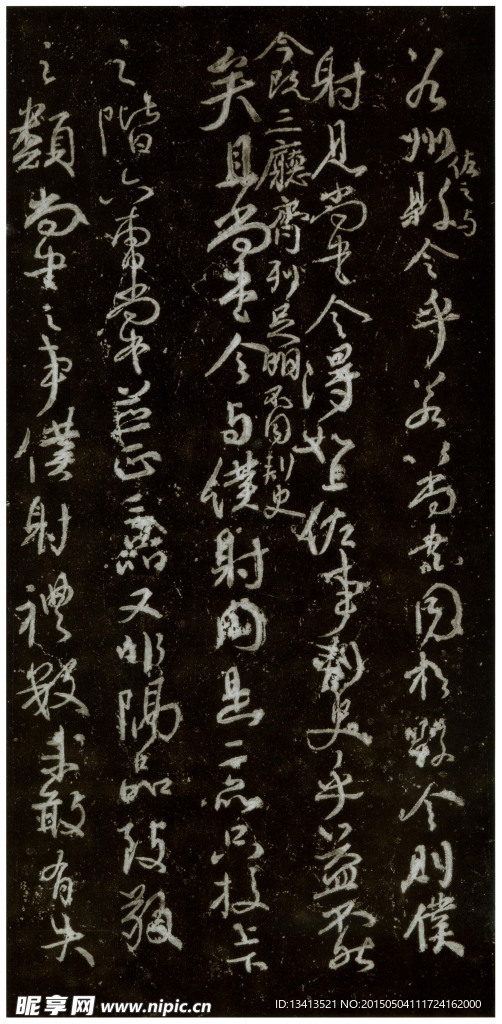 若州佐之与县令乎若以尚書同於縣令則僕
射見尚書令得如上佐事刾史乎益不然
今既三廳齊列足明不同刾史
矣且尚書令与僕射同是二品只校上下
之階六曹尚書並正三品又非隔品致敬
之類尚書之事僕射禮數未敢有失
昵享网 www.nipic.cn
ID:13413521 NO:20150504111724162000